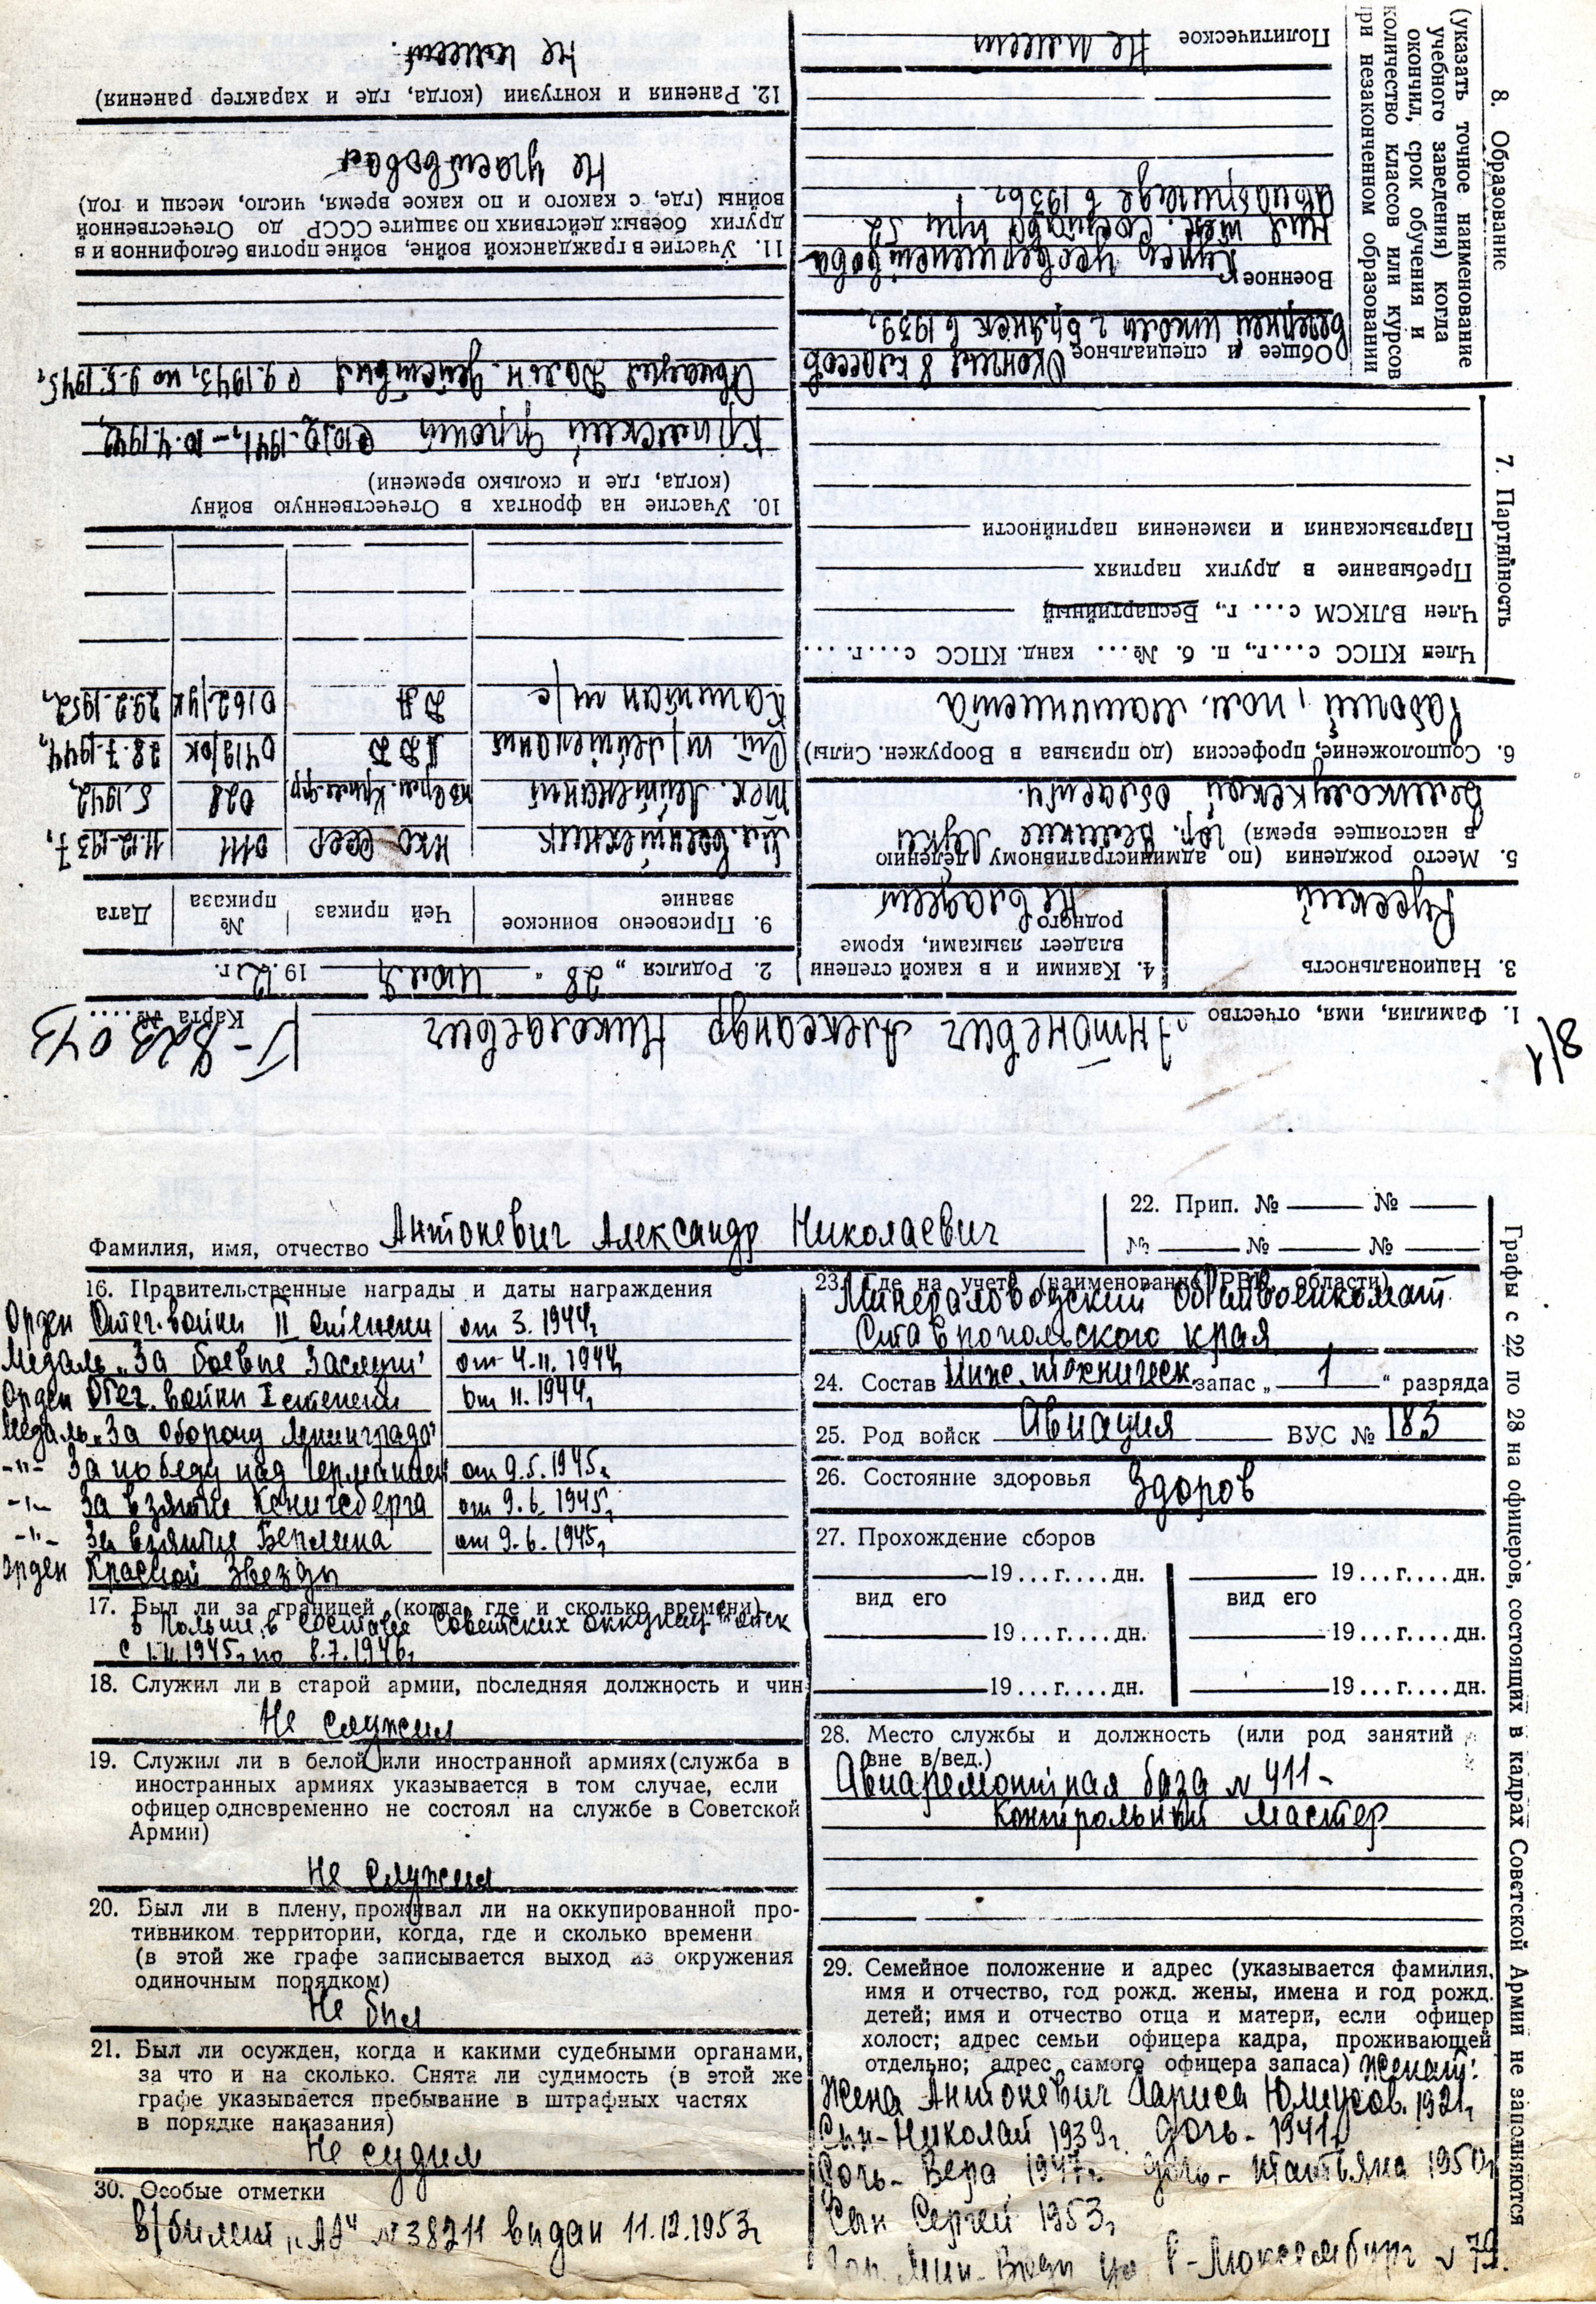 1. Фамилия, имя, отчество Антоневич Александр Николаевич
Карта №....
Г-823043
8/1
2. Родился „28" июля 1912 г.
3. Национальность
Русский
4. Какими и в какой степени
владеет языками, кроме
родного Не владеет
5. Место рождения (по административному делению
в настоящее время) гор. Великие Луки
Великолукской области.
6. Соцположение, профессия (до призыва в Вооружен. Силы)
Рабочий, пом. машиниста
7. Партийность
Член КПСС с....г., п. б. №... канд. КПСС с....г. ....
Член ВЛКСМ с... г., Беспартийный
Пребывание в других партиях
Партвзыскания и изменения партийности
8. Образование
(указать точное наименование
учебного заведения) когда
окончил, срок обучения и
количество классов или курсов
при незаконченном образовании
Общее и специальное Окончил 8 классов
Вечерней школы г. Брянск в 1939г.
Военное Курсы усовершенствова
ния тех. состава при 52
авиабригаде в 1936г.
Политическое Не имеет
9. Присвоено воинское
звание
Чей приказ
№
приказа
Дата
Мл. воентехник НКО СССР 0111 11.12.1937,
Тех. Лейтенант 028 5.1942,
Ст. т/лейтенант АДД 0419/ок 28.7.1944,
Капитан т/с ДА 0162/ук 29.2.1952,
10. Участие на фронтах в Отечественную войну
(когда, где и сколько времени)
Крымский фронт с 10.12.1941, – 10.4.1942,
Авиация Дальн. действия с 9.1943, по 9.5.1945,
11. Участие в гражданской войне, войне против белофиннов и в
других боевых действиях по защите СССР до Отечественной
войны (где, с какого и по какое время, число, месяц и год)
Не участвовал
12. Ранения и контузии (когда, где и характер ранения)
Не имеет.
Фамилия, имя, отчество Антоневич Александр Николаевич
16. Правительственные награды и даты награждения
Орден Отеч. войны II степени от 3. 1944,
Медаль „За боевые заслуги" от 4.11. 1944,
Орден Отеч. войны I степени от 11. 1944,
Медаль „За оборону Ленинграда"
-"- За победу над Германией от 9.5. 1945,
-"- За взятие Кенигсберга от 9.6. 1945,
-"- За взятие Берлина от 9.6. 1945,
Орден Красной Звезды
17. Был ли за границей (когда, где и сколько времени)
в Польше, в составе Советских оккупац. войск
1945, по 8.7.1946,
18. Служил ли в старой армии, последняя должность и чин
Не служил
19. Служил ли в белой или иностранной армиях (служба в
иностранных армиях указывается в том случае, если
офицер одновременно не состоял на службе в Советской
Армии)
Не служил
20. Был ли в плену, проживал ли на оккупированной про-
тивником территории, когда, где и сколько времени
(в этой же графе записывается выход из окружения
одиночным порядком)
Не был
21. Был ли осужден, когда и какими судебными органами,
за что и на сколько. Снята ли судимость (в этой же
графе указывается пребывание в штрафных частях
в порядке наказания)
Не судим
30. Особые отметки
в/билет „АА" № 38211 выдан 11.12.1953г
22. Прип. № № 
№ № №
23. Где на учете (наименование РВК, области)
Минераловодский объедвоенкомат
Ставропольского края
24. Состав Инж. техническ. запас „ 1 " разряда
25. Род войск Авиация ВУС № 183
26. Состояние здоровья Здоров
27. Прохождение сборов
19...г....дн. 19...г....дн.
вид его вид его
19...г....дн. 19...г....дн.
19...г....дн. 19...г....дн.
28. Место службы и должность (или род занятий
вне в/вед.)
Авиаремонтная база № 411 –
Контрольный мастер
29. Семейное положение и адрес (указывается фамилия,
имя и отчество, год рожд. жены, имена и год рожд.
детей; имя и отчество отца и матери, если офицер
холост; адрес семьи офицера кадра, проживающей
отдельно; адрес самого офицера запаса) Женат:
Жена Антоневич Лариса Юлиусов. 1921,
Сын–Николай 1939г. дочь – 1941,
Дочь – Вера 1947г. дочь – Татьяна 1950,
Сын Сергей 1953,
гор. Мин-Воды ул Р-Люксембург № 79.
Графы с 22 по 28 на офицеров, состоящих в кадрах Советской Армии не заполняются